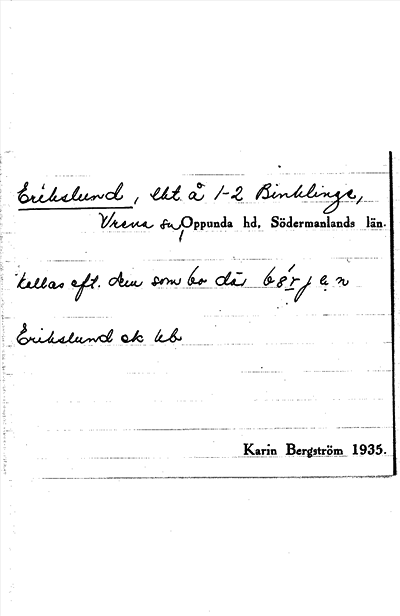 Erikslund, lht å 1-2 Binklinge,
Vrena sn, Oppunda hd, Södermanlands län.
kallas eft. dem som bo där
Erikslund ek kb
Karin Bergström 1935.